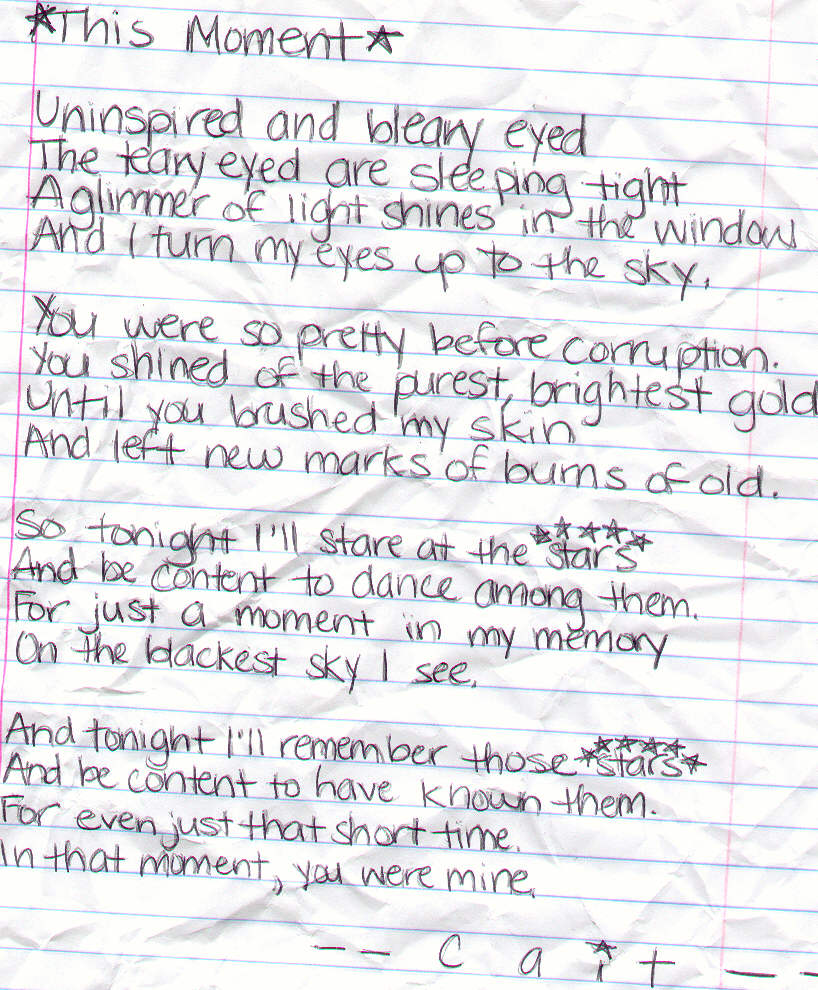 ★This Moment★
Uninspired and bleary eyed
The teary eyed are sleeping tight
A glimmer of light shines in the window
And I turn my eyes up to the sky.
You were so pretty before corruption.
You shined of the purest, brightest gold
Until you brushed my skin
And left new marks of burns of old.
So tonight I'll stare at the stars
And be content to dance among them.
For just a moment in my memory
On the blackest sky I see.
And tonight I'll remember those stars
And be content to have known them.
For even just that short time.
In that moment, you were mine.
-- Cait --